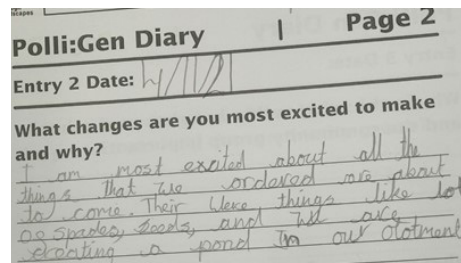 scapes
Polli:Gen Diary | Page 2
Entry 2 Date: 4/11/21
What changes are you most excited to make
and why?
I am most excited about all the
things that we ordered are about
to come. Their were things like lot
oo spades, seeds, and we are
creating a pond in our olotment